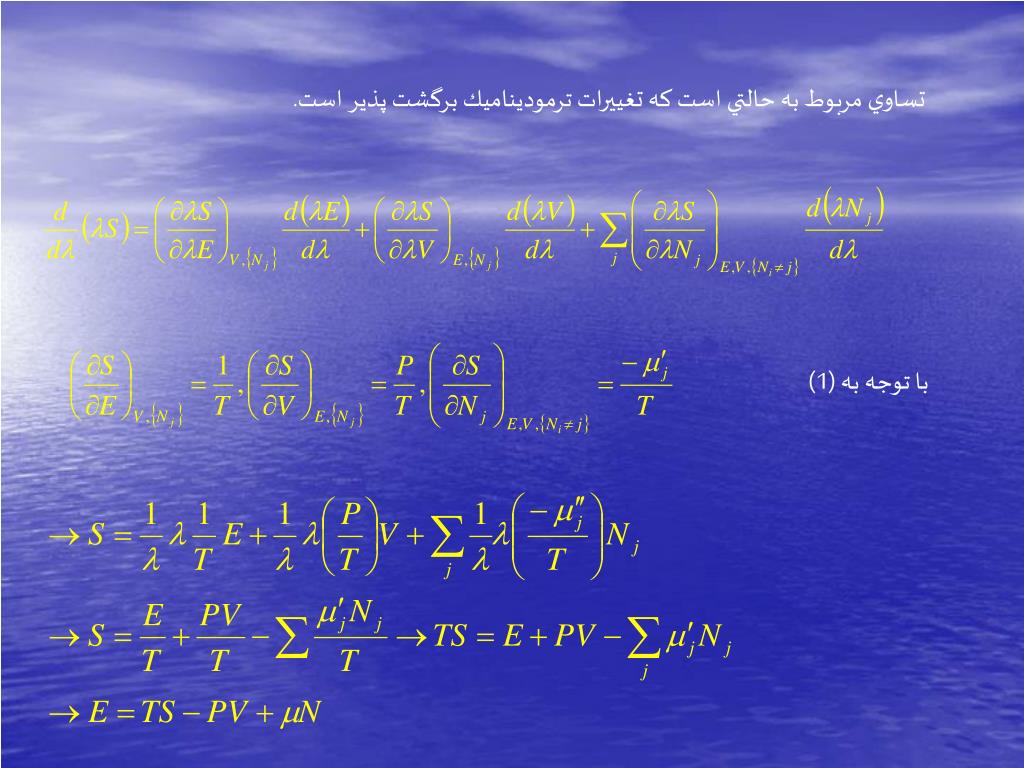 تساوي مربوط به حالتي است كه تغييرات ترموديناميك برگشت پذير است.
d/dλ (λS) = (∂λS/∂λE)_{V,{N_j}} d(λE)/dλ + (∂λS/∂λV)_{E,{N_j}} d(λV)/dλ + ∑_j (∂λS/∂λN_j)_{E,V,{N_i≠j}} d(λN_j)/dλ
با توجه به (1)
(∂S/∂E)_{V,{N_j}} = 1/T , (∂S/∂V)_{E,{N_j}} = P/T , (∂S/∂N_j)_{E,V,{N_i≠j}} = −μ′_j/T
→ S = 1/λ λ 1/T E + 1/λ λ (P/T) V + ∑_j 1/λ λ (−μ″_j/T) N_j
→ S = E/T + PV/T − ∑ μ′_j N_j/T → TS = E + PV − ∑_j μ′_j N_j
→ E = TS − PV + μN